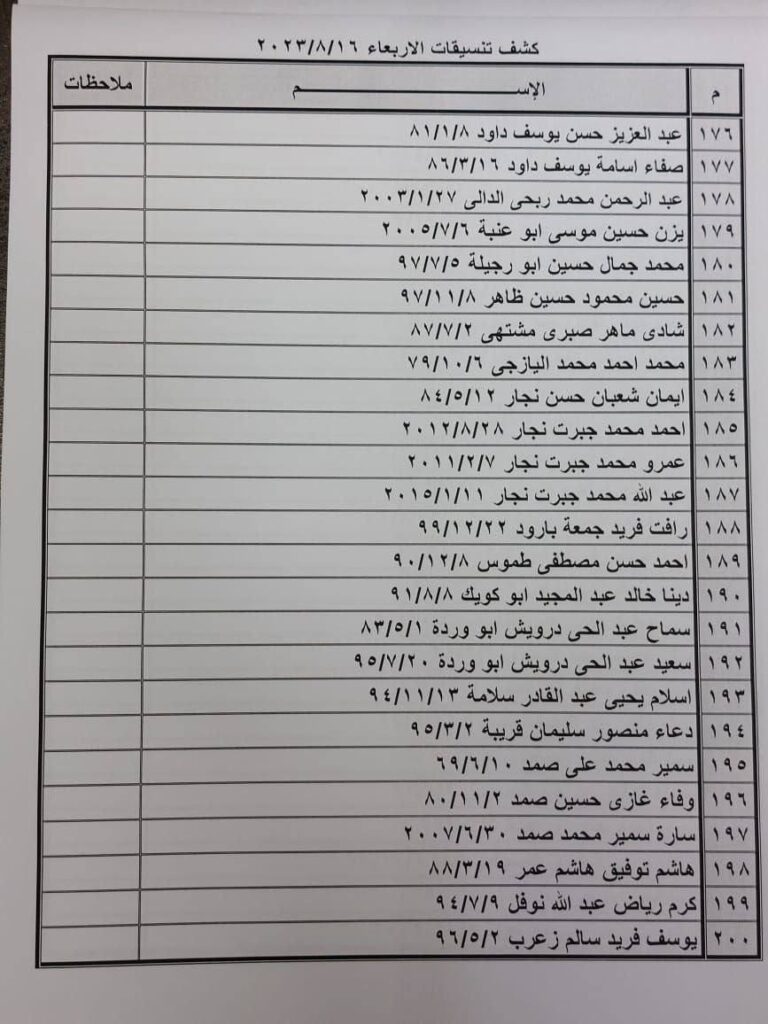 كشف تنسيقات الاربعاء ٢٠٢٣/٨/١٦
م الإســـــــــم ملاحظات
١٧٦ عبد العزيز حسن يوسف داود ٨١/١/٨
١٧٧ صفاء اسامة يوسف داود ٨٦/٣/١٦
١٧٨ عبد الرحمن محمد ربحى الدالى ٢٠٠٣/١/٢٧
١٧٩ يزن حسين موسى ابو عنبة ٢٠٠٥/٧/٦
١٨٠ محمد جمال حسين ابو رجيلة ٩٧/٧/٥
١٨١ حسين محمود حسين ظاهر ٩٧/١١/٨
١٨٢ شادى ماهر صبرى مشتهى ٨٧/٧/٢
١٨٣ محمد احمد محمد اليازجى ٧٩/١٠/٦
١٨٤ ايمان شعبان حسن نجار ٨٤/٥/١٢
١٨٥ احمد محمد جبرت نجار ٢٠١٢/٨/٢٨
١٨٦ عمرو محمد جبرت نجار ٢٠١١/٢/٧
١٨٧ عبد الله محمد جبرت نجار ٢٠١٥/١/١١
١٨٨ رافت فريد جمعة بارود ٩٩/١٢/٢٢
١٨٩ احمد حسن مصطفى طموس ٩٠/١٢/٨
١٩٠ دينا خالد عبد المجيد ابو كويك ٩١/٨/٨
١٩١ سماح عبد الحى درويش ابو وردة ٨٣/٥/١
١٩٢ سعيد عبد الحى درويش ابو وردة ٩٥/٧/٢٠
١٩٣ اسلام يحيى عبد القادر سلامة ٩٤/١١/١٣
١٩٤ دعاء منصور سليمان قريبة ٩٥/٣/٢
١٩٥ سمير محمد على صمد ٦٩/٦/١٠
١٩٦ وفاء غازى حسين صمد ٨٠/١١/٢
١٩٧ سارة سمير محمد صمد ٢٠٠٧/٦/٣٠
١٩٨ هاشم توفيق هاشم عمر ٨٨/٣/١٩
١٩٩ كرم رياض عبد الله نوفل ٩٤/٧/٩
٢٠٠ يوسف فريد سالم زعرب ٩٦/٥/٢